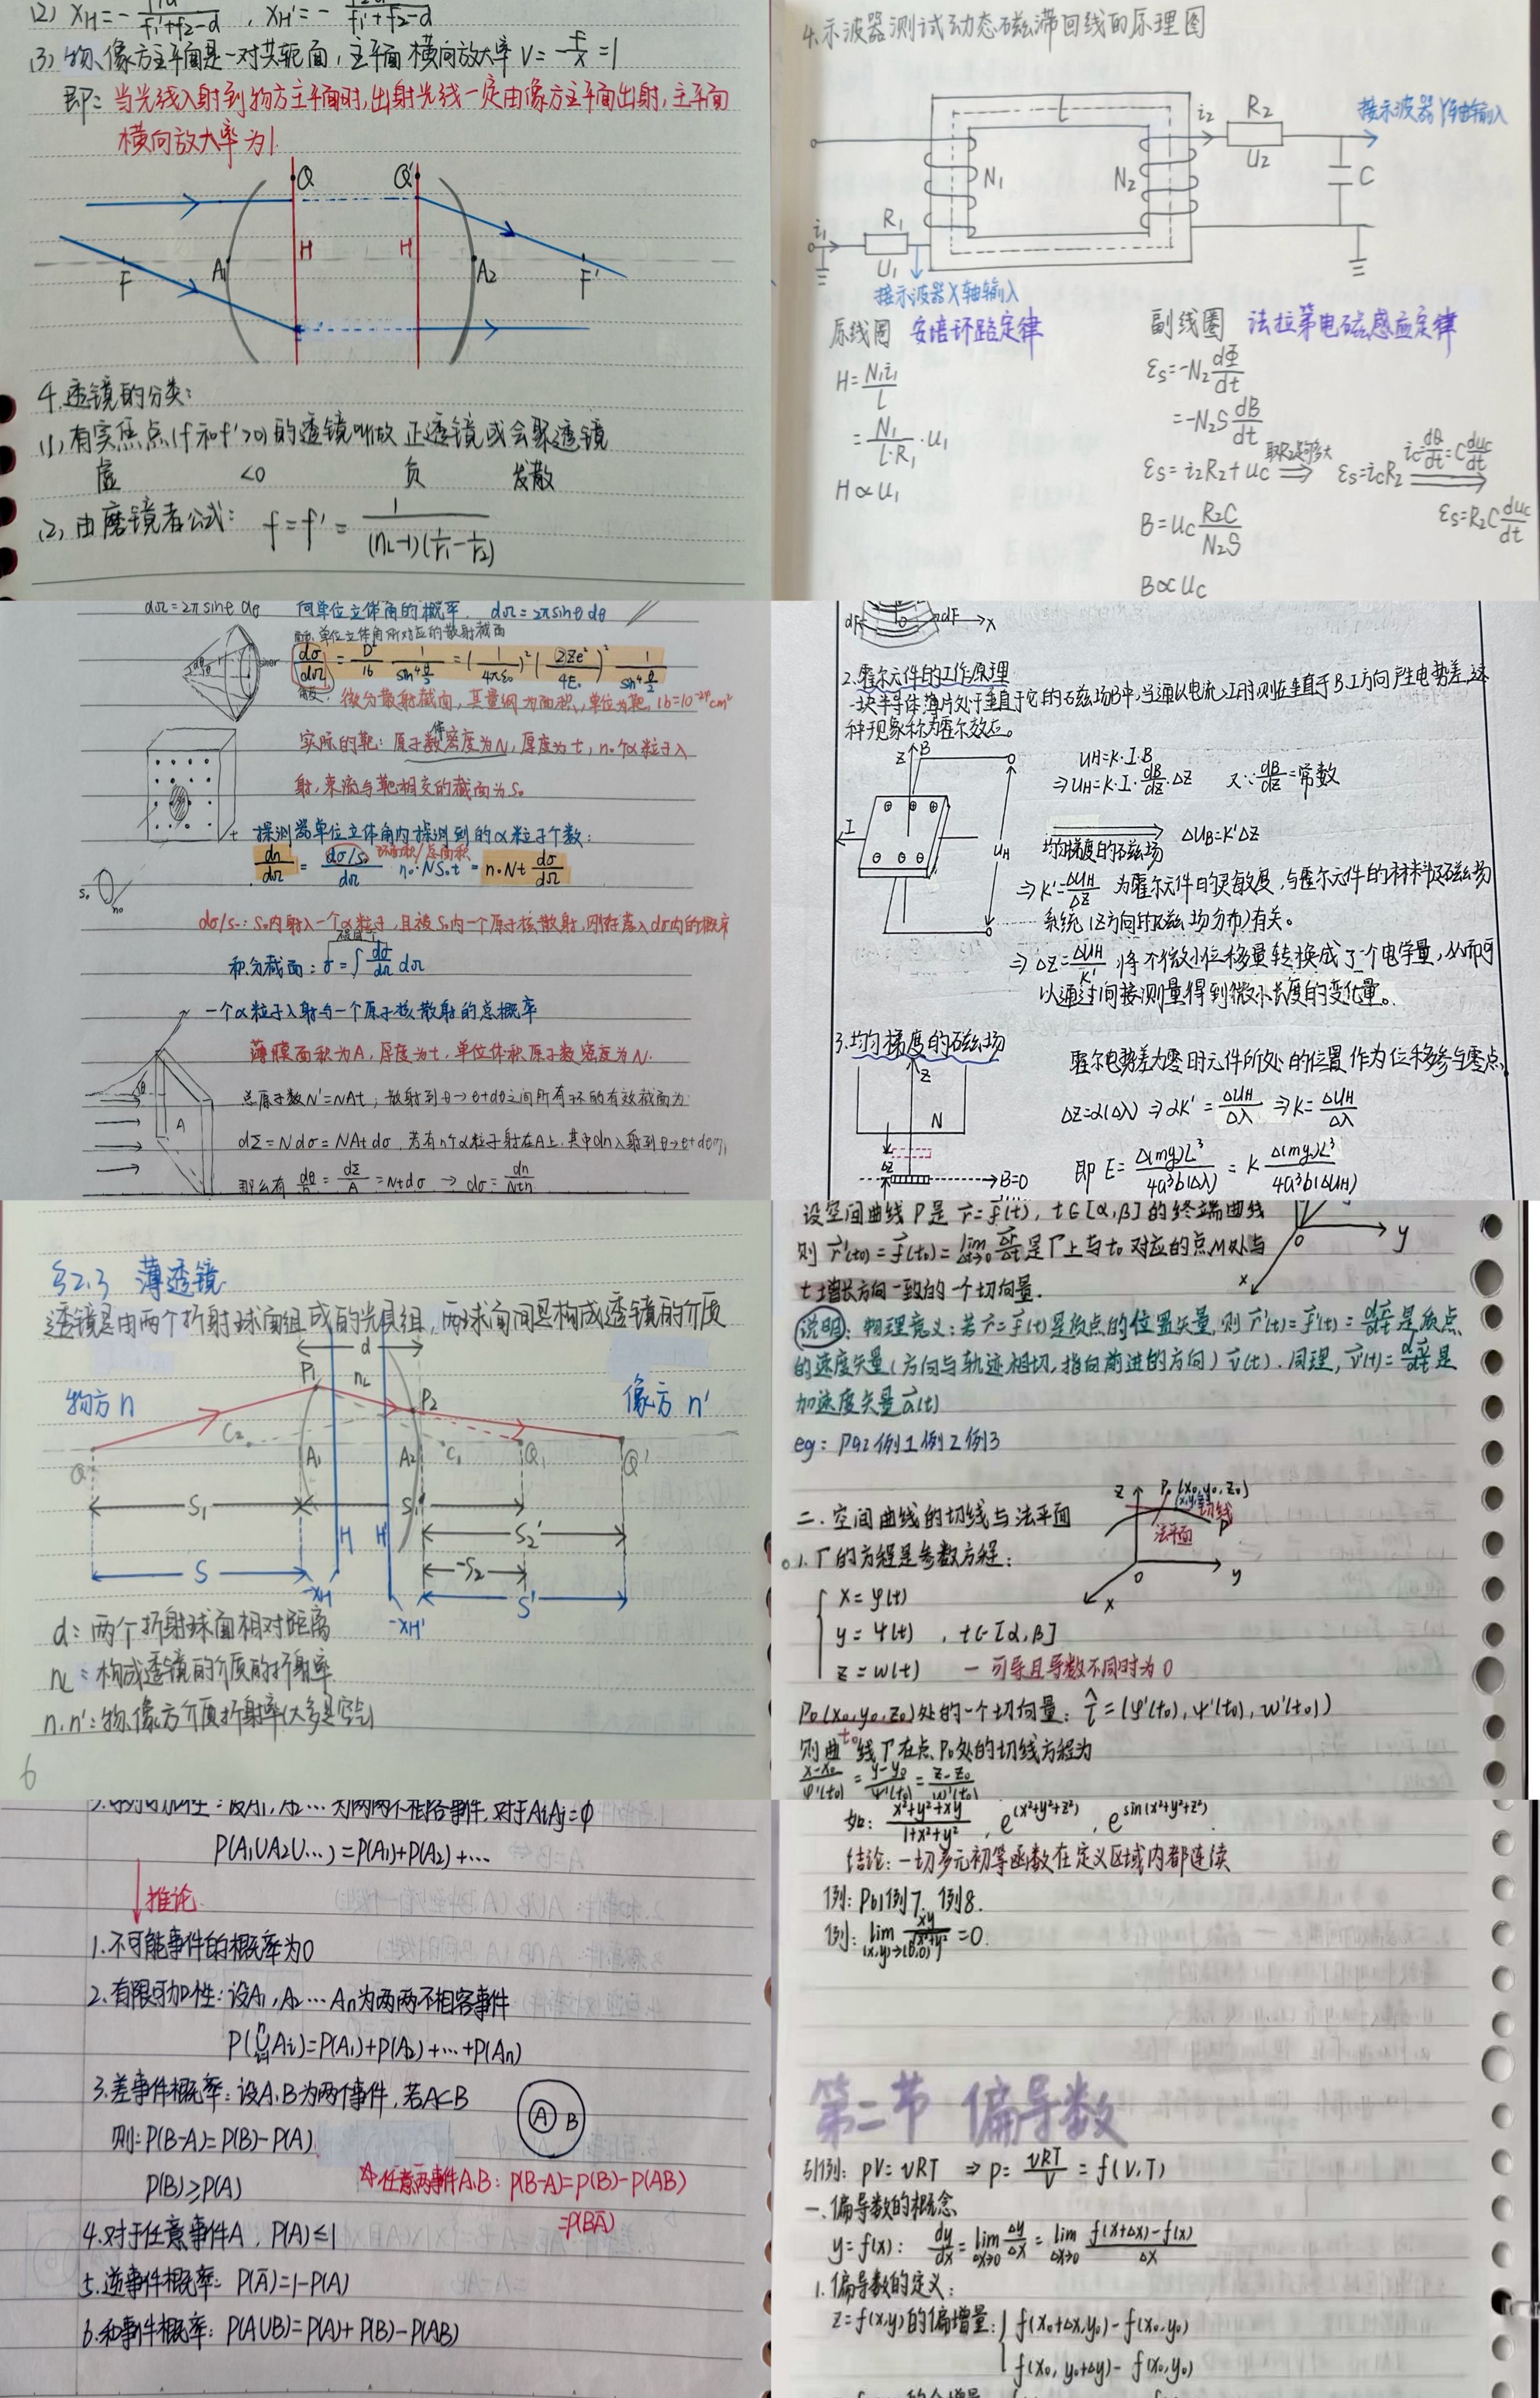 (3) 物、像方主平面是一对共轭面，主平面横向放大率 V=-f/x=1
即：当光线入射到物方主平面时，出射光线一定由像方主平面出射，主平面
横向放大率为1.
Q Q'
H H'
F A1 A2 F'
4.透镜的分类：
(1) 有实焦点(f和f'>0)的透镜叫做 正透镜或会聚透镜
虚 <0 负 发散
(2) 由磨镜者公式： f=f'=1/((nL-1)(1/r1-1/r2))
4.示波器测试动态磁滞回线的原理图
l i2 R2 接示波器Y轴输入
N1 N2 U2 C
i1 R1
U1
接示波器X轴输入
原线圈 安培环路定律
H=N1i1/l
=N1/(l·R1)·u1
H∝u1
副线圈 法拉第电磁感应定律
εs=-N2 dΦ/dt
=-N2S dB/dt
εs=i2R2+uc ⇒ εs=icR2 ic=dQ/dt=C duc/dt
εs=R2C duc/dt
B=uc R2C/(N2S)
B∝uc
dΩ=2πsinθdθ 向单位立体角的概率. dΩ=2πsinθdθ
单位立体角所对应的散射截面
dσ/dΩ = D²/16 · 1/sin⁴(θ/2) = (1/4πε0)² (2Ze²/4E0)² 1/sin⁴(θ/2)
微分散射截面，其量纲为面积，单位为靶，1b=10⁻²⁴cm²
实际的靶：原子数密度为N，厚度为t，n0个α粒子入
射，束流与靶相交的截面为S0
探测器单位立体角内探测到的α粒子个数：
dn/dΩ = (dσ/s0)/dΩ n0·NS0t = n0Nt dσ/dΩ
dσ/s0：S0内射入一个α粒子，且被S0内一个原子核散射，刚好落入dσ内的概率
积分截面：σ=∫dσ/dΩ dΩ
一个α粒子入射与一个原子核散射的总概率
薄膜面积为A，厚度为t，单位体积原子数密度为N.
总原子数N'=NAt，散射到θ→θ+dθ之间所有环的有效截面为
dΣ=N'dσ=NAtdσ，若有n个α粒子射在A上，其中dn入射到θ→θ+dθ内，
2.霍尔元件的工作原理
一块半导体薄片处于垂直于它的磁场B中，当通以电流I时，则在垂直于B.I方向产生电势差，这
种现象称为霍尔效应。
UH=K·I·B
⇒UH=K·I·dB/dz·ΔZ 又∵dB/dz=常数
均匀梯度的磁场 ΔUB=K'ΔZ
⇒K'=ΔUH/ΔZ 为霍尔元件的灵敏度，与霍尔元件的材料及磁场
系统(Z方向时磁场分布)有关。
⇒ΔZ=ΔUH/K' 将不微小位移量转换成了个电学量，从而可
以通过间接测量得到微小长度的变化量。
3.均匀梯度的磁场
霍尔电势差为零时元件所处的位置作为位移参与零点
Z N ΔZ B=0
ΔZ=2(Δλ)⇒2K'=ΔUH/Δλ⇒K=ΔUH/Δλ
即 E=Δ(mg)L³/(4a³b(Δλ))=K Δ(mg)L³/(4a³b(ΔUH))
§2.3 薄透镜
透镜是由两个折射球面组成的光具组，两球面间是构成透镜的介质
d
P1 nL P2
物方n 像方n'
C2 A1 A2 C1 Q1
Q Q'
S1 S1' S2'
H H' -S2
S -XH -XH' S'
d：两个折射球面相对距离
nL：构成透镜的介质的折射率
n.n'：物、像方介质折射率(大多是空气)
6
设空间曲线Γ是 r=f(t)，t∈[α,β]的终端曲线
则 r'(t0)=f'(t0)=lim Δr/Δt 是Γ上与t0对应的点M处与
t增长方向一致的一个切向量.
说明：物理意义：若r=f(t)是质点的位置矢量，则r'(t)=f'(t)=dr/dt是质点
的速度矢量(方向与轨迹相切，指向前进的方向)v(t).同理，v'(t)=dv/dt是
加速度矢量a(t)
eg：P92例1例2例3
二.空间曲线的切线与法平面
z P0(x0,y0,z0)
切线
法平面
1.Γ的方程是参数方程：
x=φ(t)
y=ψ(t) ，t∈[α,β]
z=w(t) — 可导且导数不同时为0
P0(x0,y0,z0)处的一个切向量：τ=(φ'(t0),ψ'(t0),w'(t0))
则曲线Γ在点P0处的切线方程为
(x-x0)/φ'(t0)=(y-y0)/ψ'(t0)=(z-z0)/w'(t0)
P(A1∪A2∪…)=P(A1)+P(A2)+…
推论
1.不可能事件的概率为0
2.有限可加性：设A1，A2…An为两两不相容事件
P(∪Ai)=P(A1)+P(A2)+…+P(An)
3.差事件概率：设A.B为两个事件，若A⊂B
则：P(B-A)=P(B)-P(A)
A B
P(B)≥P(A)
☆任意两事件A.B：P(B-A)=P(B)-P(AB)
=P(BĀ)
4.对于任意事件A，P(A)≤1
5.逆事件概率：P(Ā)=1-P(A)
6.和事件概率：P(A∪B)=P(A)+P(B)-P(AB)
如：(x²+y²+xy)/(1+x²+y²)，e^(x²+y²+z²)，e^sin(x²+y²+z²)
结论：一切多元初等函数在定义区域内都连续
例：P61例7.例8.
例：lim(x,y)→(0,0) xy/√(x²+y²)=0.
第二节 偏导数
引例：pV=νRT ⇒p=νRT/V=f(V,T)
一.偏导数的概念
y=f(x)：dy/dx=lim Δx→0 Δy/Δx=lim Δx→0 (f(x+Δx)-f(x))/Δx
1.偏导数的定义：
z=f(x,y)的偏增量：f(x0+Δx,y0)-f(x0,y0)
f(x0,y0+Δy)-f(x0,y0)